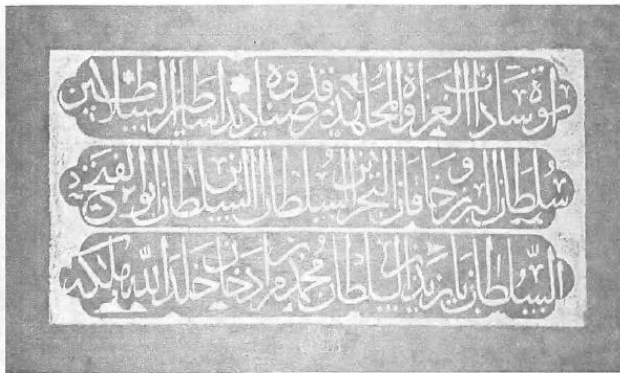 سادات الغزاة والمجاهدين قدوة صناديد اساطين السلاطين
سلطان البرين وخاقان البحرين السلطان ابن السلطان ابو الفتح
السلطان بايزيد بن السلطان محمد بن مراد خان خلد الله ملكه